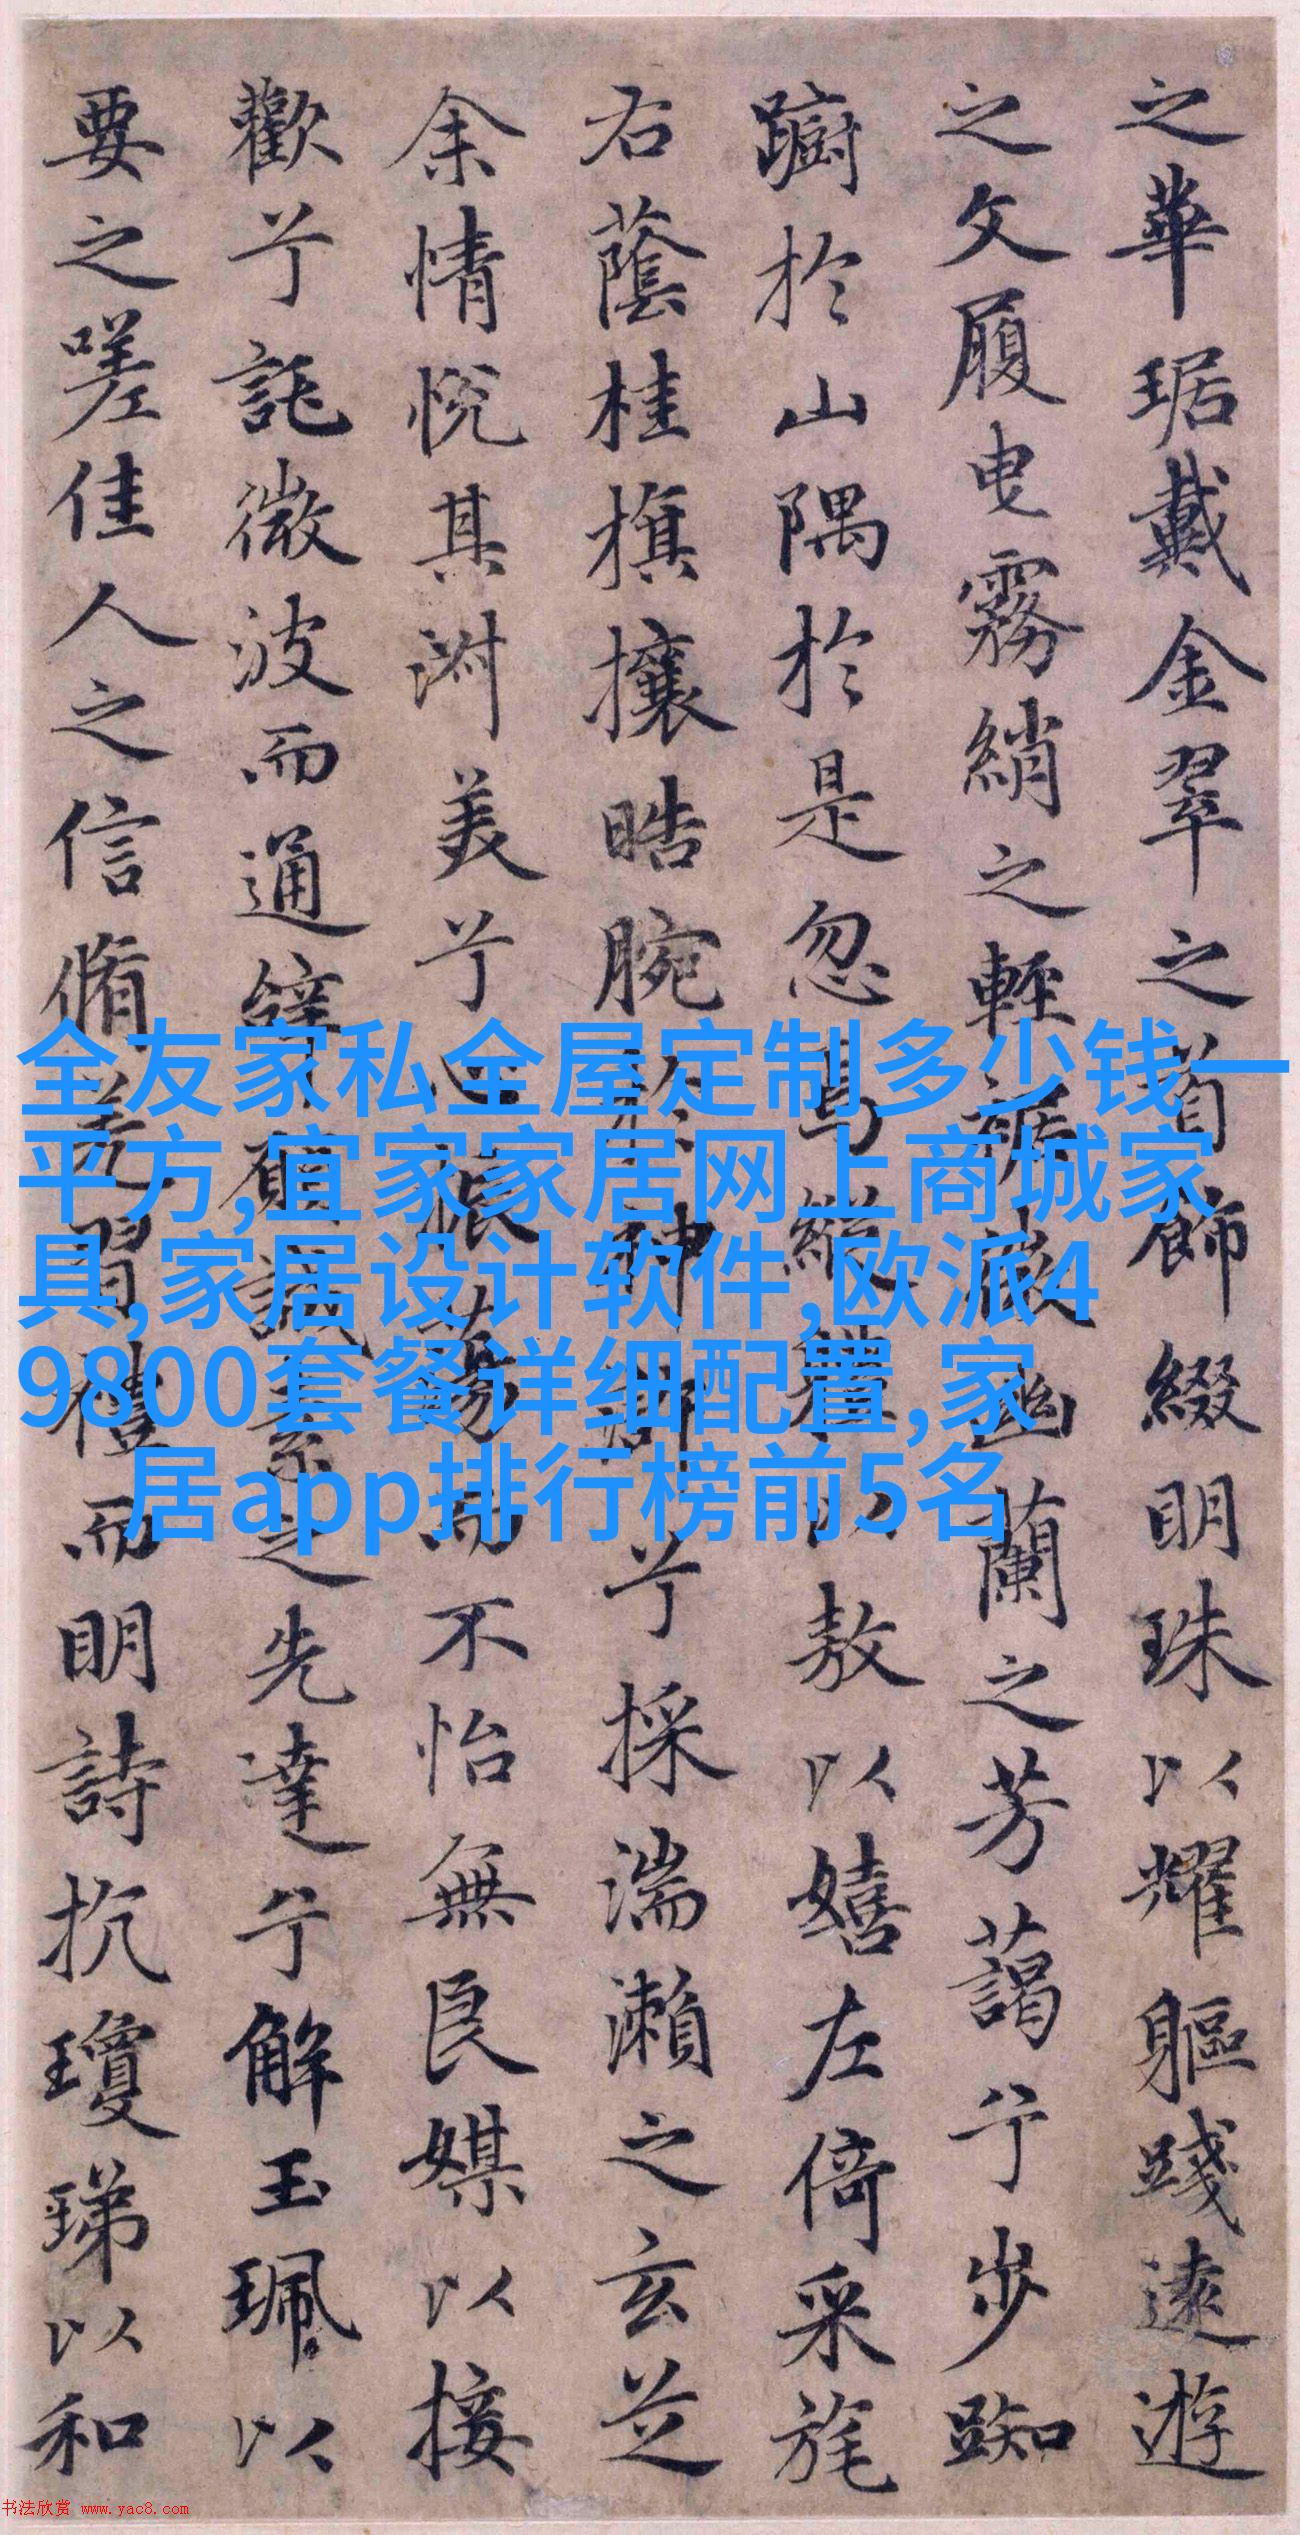 之華琚戴金翠之首飾綴明珠以耀軀踐遠遊
之文履曳霧綃之輕裾微幽蘭之芳藹兮步踟
躕於山隅於是忽焉縱體以敖以嬉左倚采旄
右蔭桂旗攘晧腕於神滸兮採湍瀨之玄芝
余情悅其淑美兮心振蕩而不怡無良媒以接
歡兮託微波而通辭願誠素之先達兮解玉珮以
要之嗟佳人之信脩羌習禮而明詩抗瓊珶以和
全友家私全屋定制多少钱一
平方,宜家家居网上商城家
具,家居设计软件,欧派4
9800套餐详细配置,家
居app排行榜前5名
书法欣赏 www.yac8.com